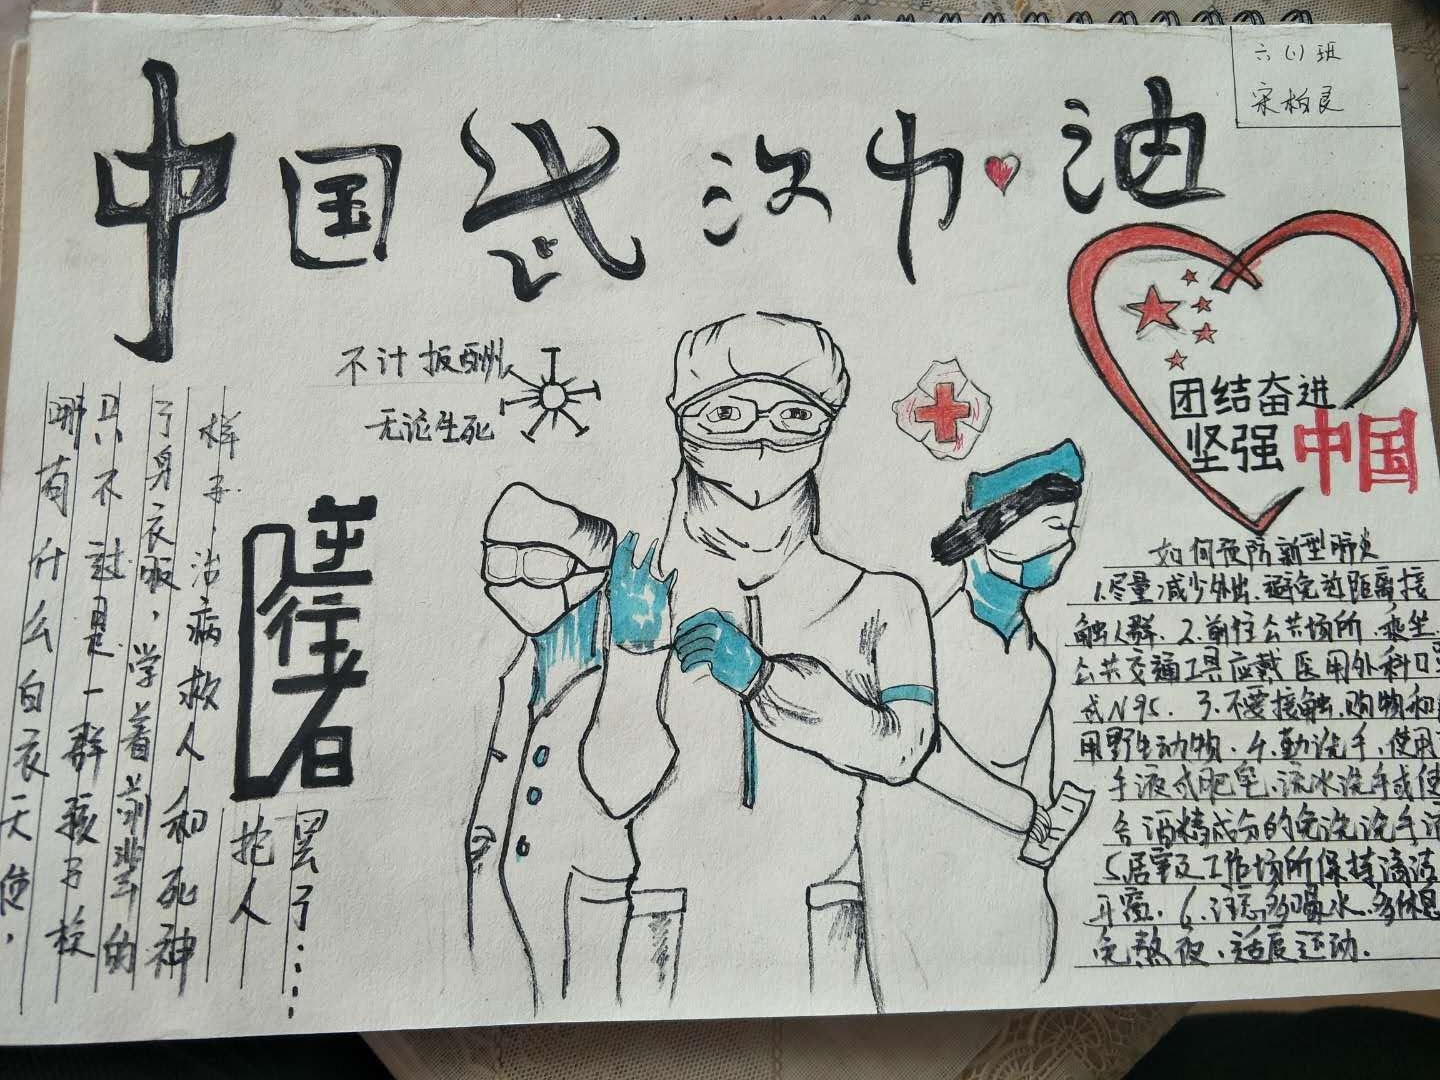 六(1)班
宋柏良
中国武汉加油
不计报酬
无论生死
团结奋进
坚强中国
逆行者
哪有什么白衣天使，
只不过是一群孩子换
了身衣服，学着前辈的
样子，治病救人和死神
抢人
罢了……
如何预防新型肺炎
1.尽量减少外出.避免近距离接
触人群.2.前往公共场所、乘坐
公共交通工具应戴医用外科口
或N95.3.不要接触、购物和
用野生动物.4.勤洗手、使用
手液或肥皂、流水洗手或使
含酒精成分的免洗洗手
5.居室及工作场所保持清洁
开窗.6.注意多喝水.多休息
免熬夜、适度运动.